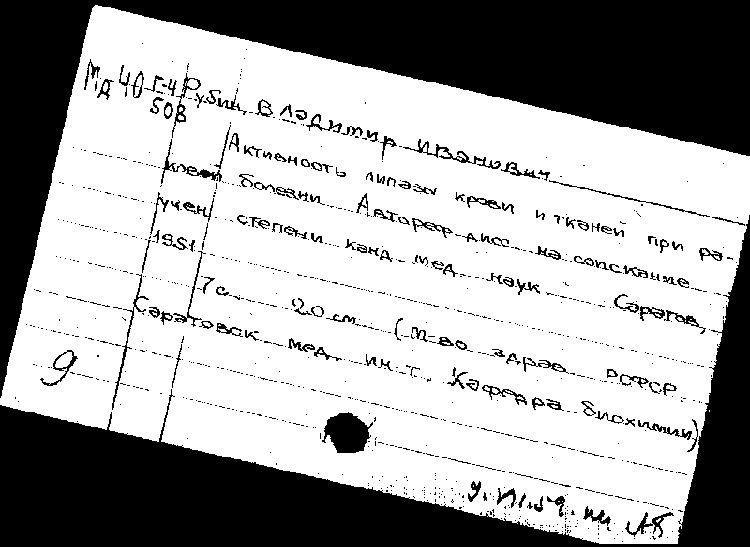 Мд 40 Г-4 Рубин, Владимир Иванович.
508
Активность липазы крови и тканей при ра-
ковой болезни Автореф дисс на соискание
учен степени канд мед наук Саратов,
1951.
7 с. 20 см (М-во здрав РСФСР.
Саратовск мед. ин-т. Кафедра биохимии)
9